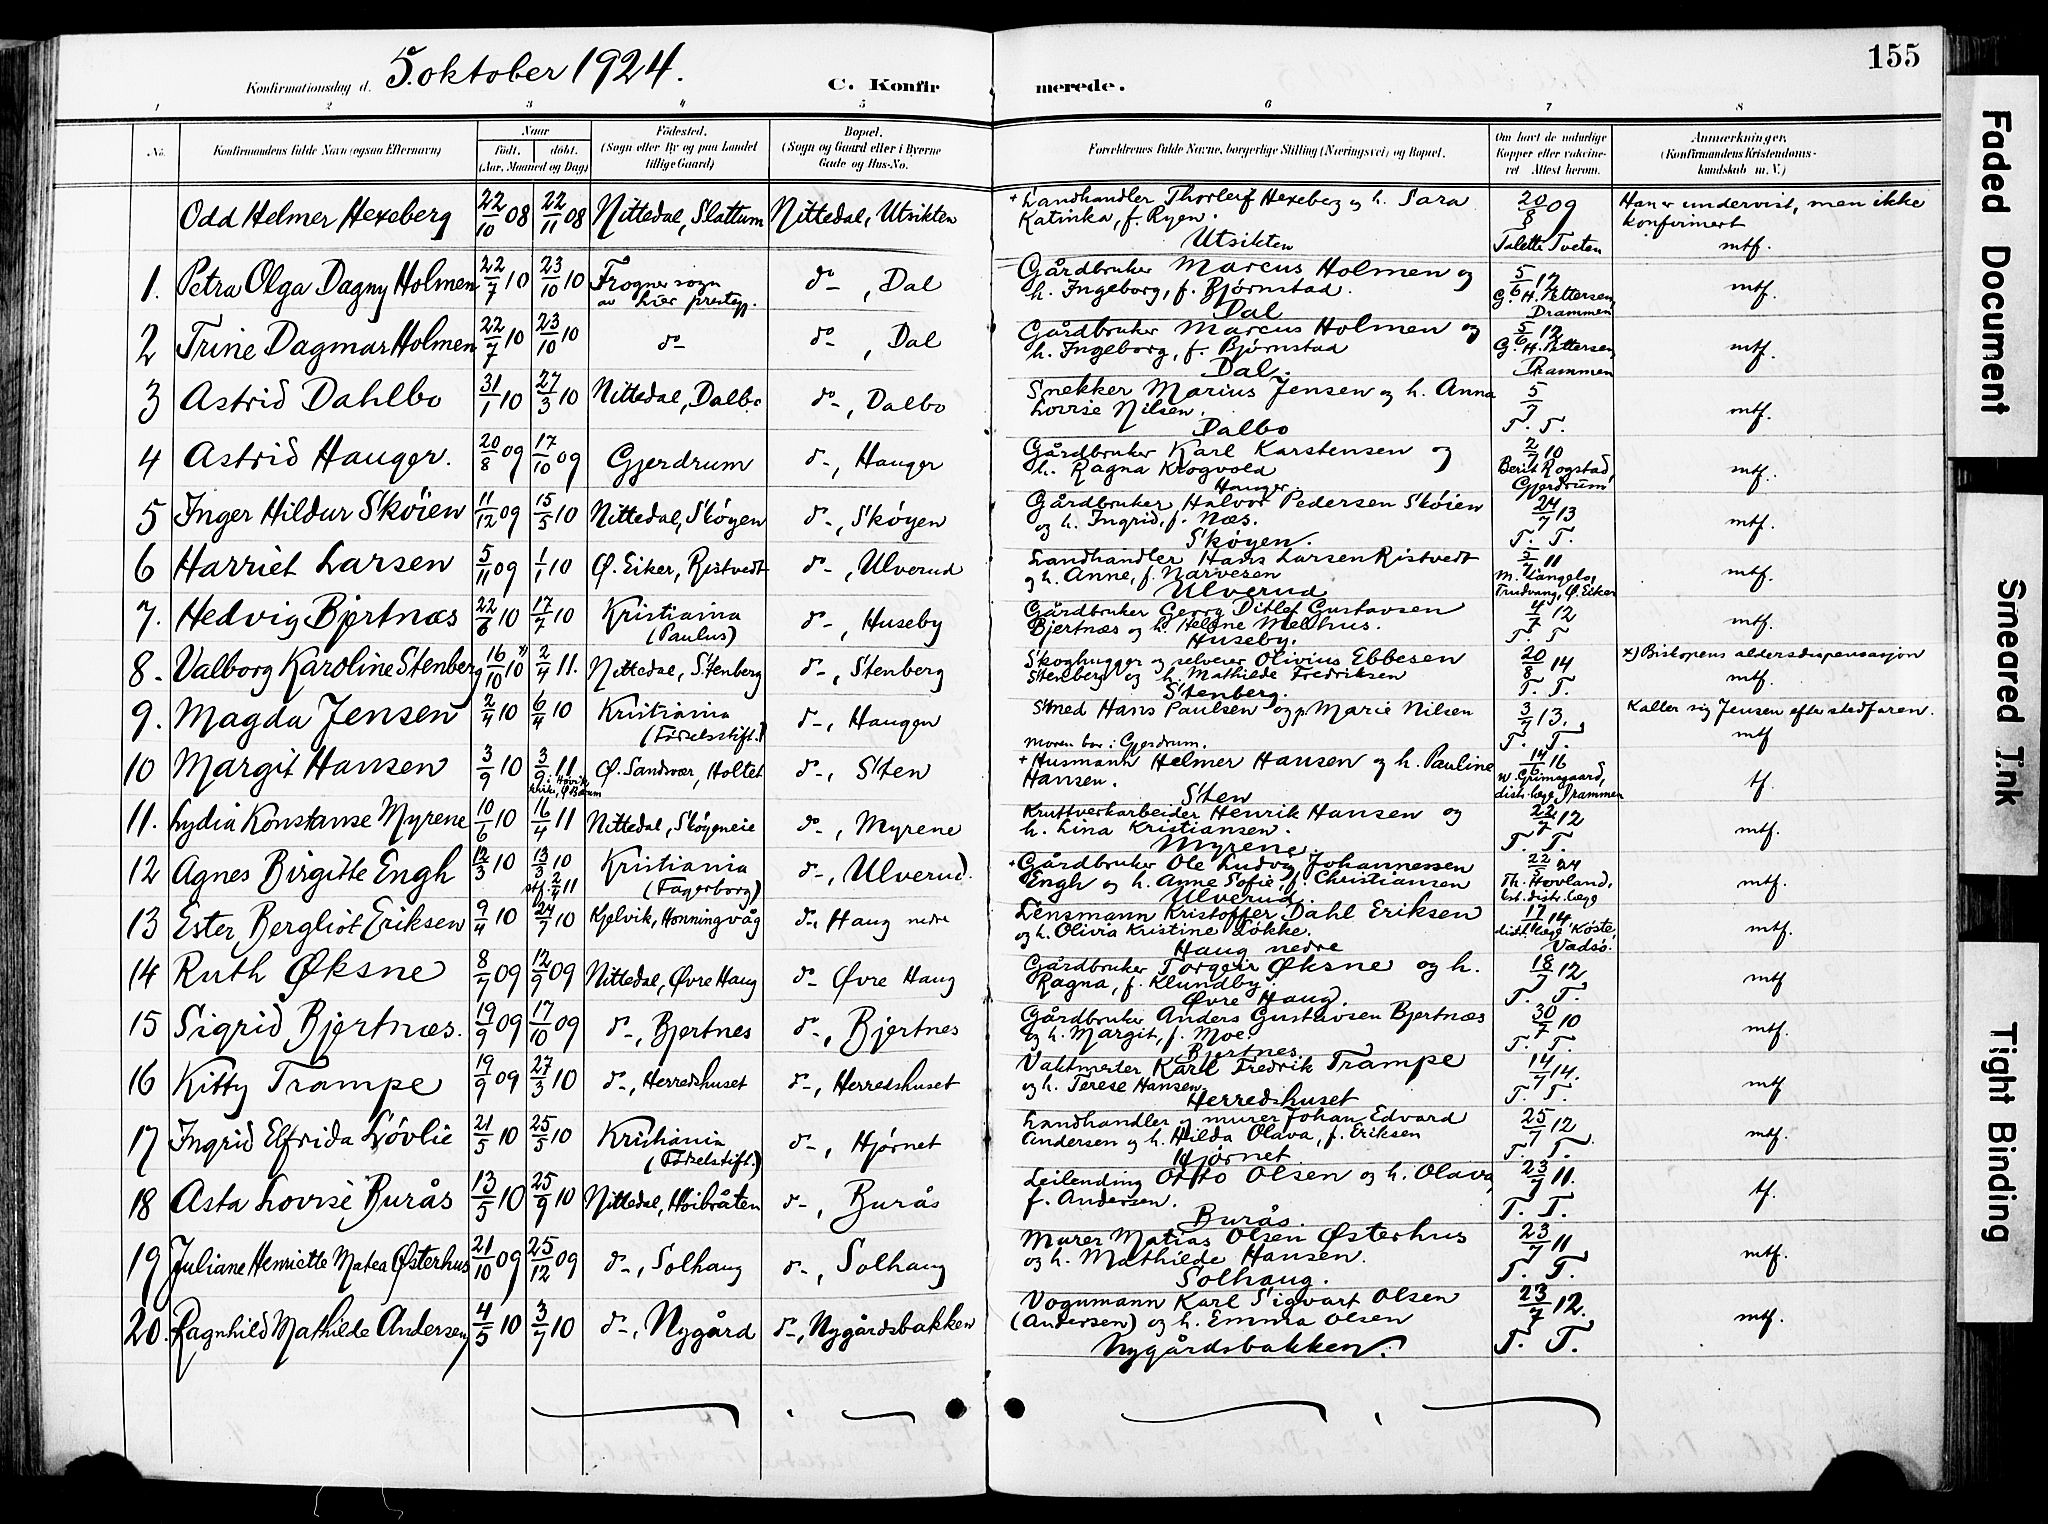 155
Konfirmationsdag d. 5. oktober 1924.
C. Konfirmerede.
1 2 3 4 5 6 7 8
No. Konfirmandens fulde Navn (ogsaa Efternavn) Naar födt. döbt. (Aar, Maaned og Dag) Födested. (Sogn eller By og paa Landet tillige Gaard) Bopæl. (Sogn og Gaard eller i Byerne Gade og Hus-No. Forældrenes fulde Navne, borgerlige Stilling (Næringsvei) og Bopæl. Om havt de naturlige Kopper eller vakcineret. Attest herom. Anmærkninger. (Konfirmandens Kristendomskundskab m. V.)
Odd Helmer Hexeberg 22/10 08 22/11 08 Nittedal, Slattum Nittedal, Utsikten + Landhandler Thorleif Hexeberg og h. Sara Katinka, f. Ryen. Utsikten 20/8 09 Talette Tveten Han er undervist, men ikke konfirmert mtf.
1. Petra Olga Dagny Holmen 22/7 10 23/10 10 Frogner sogn av hier prestgj. do , Dal Gårdbruker Marcus Holmen og h. Ingeborg, f. Bjørnstad. Dal 5/6 12 G. H. Pettersen, Drammen mtf.
2 Trine Dagmar Holmen 22/7 10 23/10 10 do do , Dal Gårdbruker Marcus Holmen og h. Ingeborg, f. Bjørnstad Dal. 5/6 12 G. H. Pettersen, Drammen mtf.
3 Astrid Dahlbo 31/1 10 27/3 10 Nittedal, Dalbo do , Dalbo Snekker Marius Jensen og h. Anna Lovise Nilsen. Dalbo 5/7 T. T. mtf.
4 Astrid Hauger. 20/8 09 17/10 09 Gjerdrum do , Hauger Gårdbruker Karl Karstensen og h. Ragna Krogvold Hauger. 2/7 10 Berit Rogstad, Gjerdrum mtf.
5 Inger Hildur Skøien 11/12 09 15/5 10 Nittedal, Skøyen do , Skøyen Gårdbruker Halvor Pedersen Skøien og h. Ingrid, f. Næs. Skøyen. 24/7 13 T. T. mtf.
6 Harriet Larsen 5/11 09 1/1 10 Ø. Eiker, Ristvedt do , Ulverud Landhandler Hans Larsen Ristvedt og h. Anne, f. Narvesen Ulverud 5/7 11 M. Langelo, Trudvang, Ø. Eiker mtf.
7. Hedvig Bjertnæs 22/6 10 17/7 10 Kristiania (Paulus) do , Huseby Gårdbruker Georg Ditlef Gustavsen Bjertnæs og h. Helene Melhus. Huseby. 4/7 12 T. T. mtf.
8. Valborg Karoline Stenberg 16/10 10 x) 2/4 11. Nittedal, Stenberg do , Stenberg Skoghugger og selveier Olivius Ebbesen Stenberg og h. Mathilde Fredriksen Stenberg. 20/8 14 T. T. x) Biskopens aldersdispensasjon mtf.
9. Magda Jensen 2/4 10 6/4 10 Kristiania (Fødselsstift.) do , Haugen Smed Hans Paulsen og p. Marie Nilsen Moren bor i Gjerdrum. 3/7 13. T. T. Kaller sig Jensen efter stedfaren. mtf
10 Margit Hansen 3/9 10 3/9 11 i Høvik kirke, Ø. Bærum Ø. Sandsvær, Holtet do , Sten + Husmann Helmer Hansen og h. Pauline Hansen. Sten 14/6 16 W. Grimsgaard, distr. læge, Drammen tf.
11. Lydia Konstanse Myrene 10/6 10 16/4 11 Nittedal, Skøyeneie do , Myrene Kruttverkarbeider Henrik Hansen og h. Lina Kristiansen. Myrene. 22/7 12 T. T. mtf.
12 Agnes Birgitte Engh 12/3 10 13/3 10 stf. 2/4 11 Kristiania (Fagerborg) do , Ulverud. + Gårdbruker Ole Ludvig Johannessen Engh og h. Anne Sofie, f. Christiansen Ulverud. 22/5 24 Th. Hovland, kst. distr. læge mtf.
13 Ester Bergliot Eriksen 9/4 10 24/7 10 Kjelvik, Honningvåg do , Haug nedre Lensmann Kristoffer Dahl Eriksen og h. Olivia Kristine Løkke. Haug nedre 17/7 14 distr. læge Køste, Vadsø. mtf.
14 Ruth Øksne 8/7 09 12/9 09 Nittedal, Øvre Haug do Øvre Haug Gårdbruker Torgeir Øksne og h. Ragna, f. Klundby. Øvre Haug. 18/7 12 T. T. mtf
15 Sigrid Bjertnæs. 19/9 09 17/10 09 do , Bjertnes do , Bjertnes Gårdbruker Anders Gustavsen Bjertnæs og h. Margit, f. Moe. Bjertnes. 30/7 10 T. T. mtf.
16 Kitty Trampe 19/9 09 27/3 10 do , Herredshuset do , Herredshuset Vaktmester Karl Fredrik Trampe og h. Terese Hansen. Herredshuset 14/7 14. T. T. mtf
17 Ingrid Elfrida Løvlie 21/5 10 25/5 10 Kristiania (Fødselstift.) do , Hjørnet Landhandler og murer Johan Edvard Andersen og h. Hilda Olava, f. Eriksen Hjørnet 25/7 12 T. T. mtf.
18 Asta Lovise Burås 13/5 10 25/9 10 Nittedal, Høibråten do , Burås Leilending Otto Olsen og h. Olava, f. Andersen. Burås. 23/7 11. T. T. tf.
19 Juliane Henriette Matea Østerhus 21/10 09 25/12 09 do , Solhaug do , Solhaug Murer Matias Olsen Østerhus og h. Mathilde Hansen. Solhaug. 23/7 11 T. T. mtf.
20. Ragnhild Mathilde Andersen 4/5 10 3/7 10 do , Nygård do , Nygårdsbakken Vognmann Karl Sigvart Olsen (Andersen) og h. Emma Olsen Nygårdsbakken. 23/7 12. T. T. mtf.
Faded Document
Smeared Ink
Tight Binding